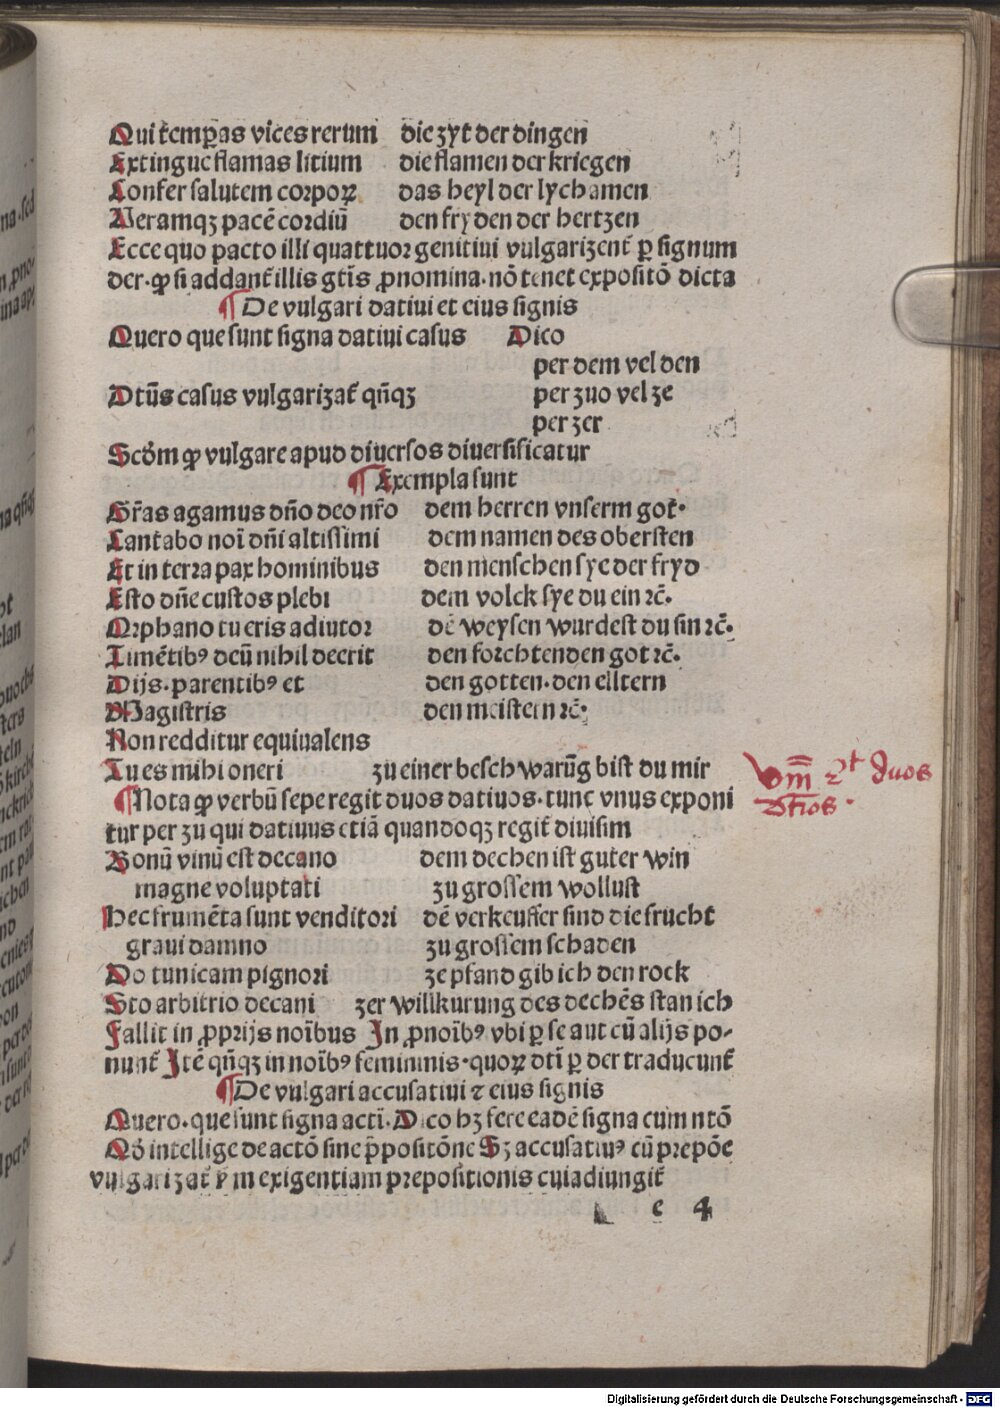 Qui temꝑas vices rerum die zyt der dingen
Extingue flamas litium die flamen der kriegen
Confer salutem corpoꝝ das heyl der lychamen
Veramqꝫ pacē cordiū den fryden der hertzen
Ecce quo pacto illi quattuor genitiui vulgarizent̄ ꝑ signum
der. ꝙ si addant̄ illis gtīs ꝓnomina. nō tenet expositō dicta
¶ De vulgari datiui et eius signis
Quero que sunt signa datiui casus Dico
per dem vel den
Dtūs casus vulgarizat̄ qn̄qꝫ per zuo vel ze
per zer
Scd̄m ꝙ vulgare apud diuersos diuersificatur
¶ Exempla sunt
Gr̄as agamus dn̄o deo nr̄o dem herren vnserm got.
Cantabo noī dn̄i altissimi dem namen des obersten
Et in terra pax hominibus den menschen sye der fryd
Esto dn̄e custos plebi dem volck sye du ein ⁊c̄.
Orphano tu eris adiutor dē weysen wurdest du sin ⁊c̄.
Timētibꝰ deū nihil deerit den forchtenden got ⁊c̄.
Dijs. parentibꝰ et den gotten. den elltern
Magistris den meistern ⁊c̄.
Non redditur equiualens
Tu es mihi oneri zu einer beschwarūg bist du mir
Vm̄ 2t duos
¶ Nota ꝙ verbū sepe regit duos datiuos. tunc vnus exponi
dtīos.
tur per zu qui datiuus etiā quandoqꝫ regit̄ diuisim
Bonū vinū est decano dem dechen ist guter win
magne voluptati zu grossem wollust
Hec frumēta sunt venditori dē verkeuffer sind die frucht
graui damno zu grossem schaden
Do tunicam pignori ze pfand gib ich den rock
Sto arbitrio decani zer willkurung des dechēs stan ich
Fallit in ꝓprijs noībus In ꝓnoībꝰ vbi ꝑ se aut cū alijs po-
nunt̄ Itē qn̄qꝫ in noībꝰ femininis. quoꝝ dtī ꝑ der traducunt̄
¶ De vulgari accusatiui ⁊ eius signis
Quero. que sunt signa actī. Dico hꝫ fere eadē signa cum ntō
Qd̄ intellige de actō sine p̄positōne Sꝫ accusatiuꝰ cū prepōe
vulgarizat̄ ẜm exigentiam prepositionis cui adiungit̄
e 4
Digitalisierung gefördert durch die Deutsche Forschungsgemeinschaft - DFG